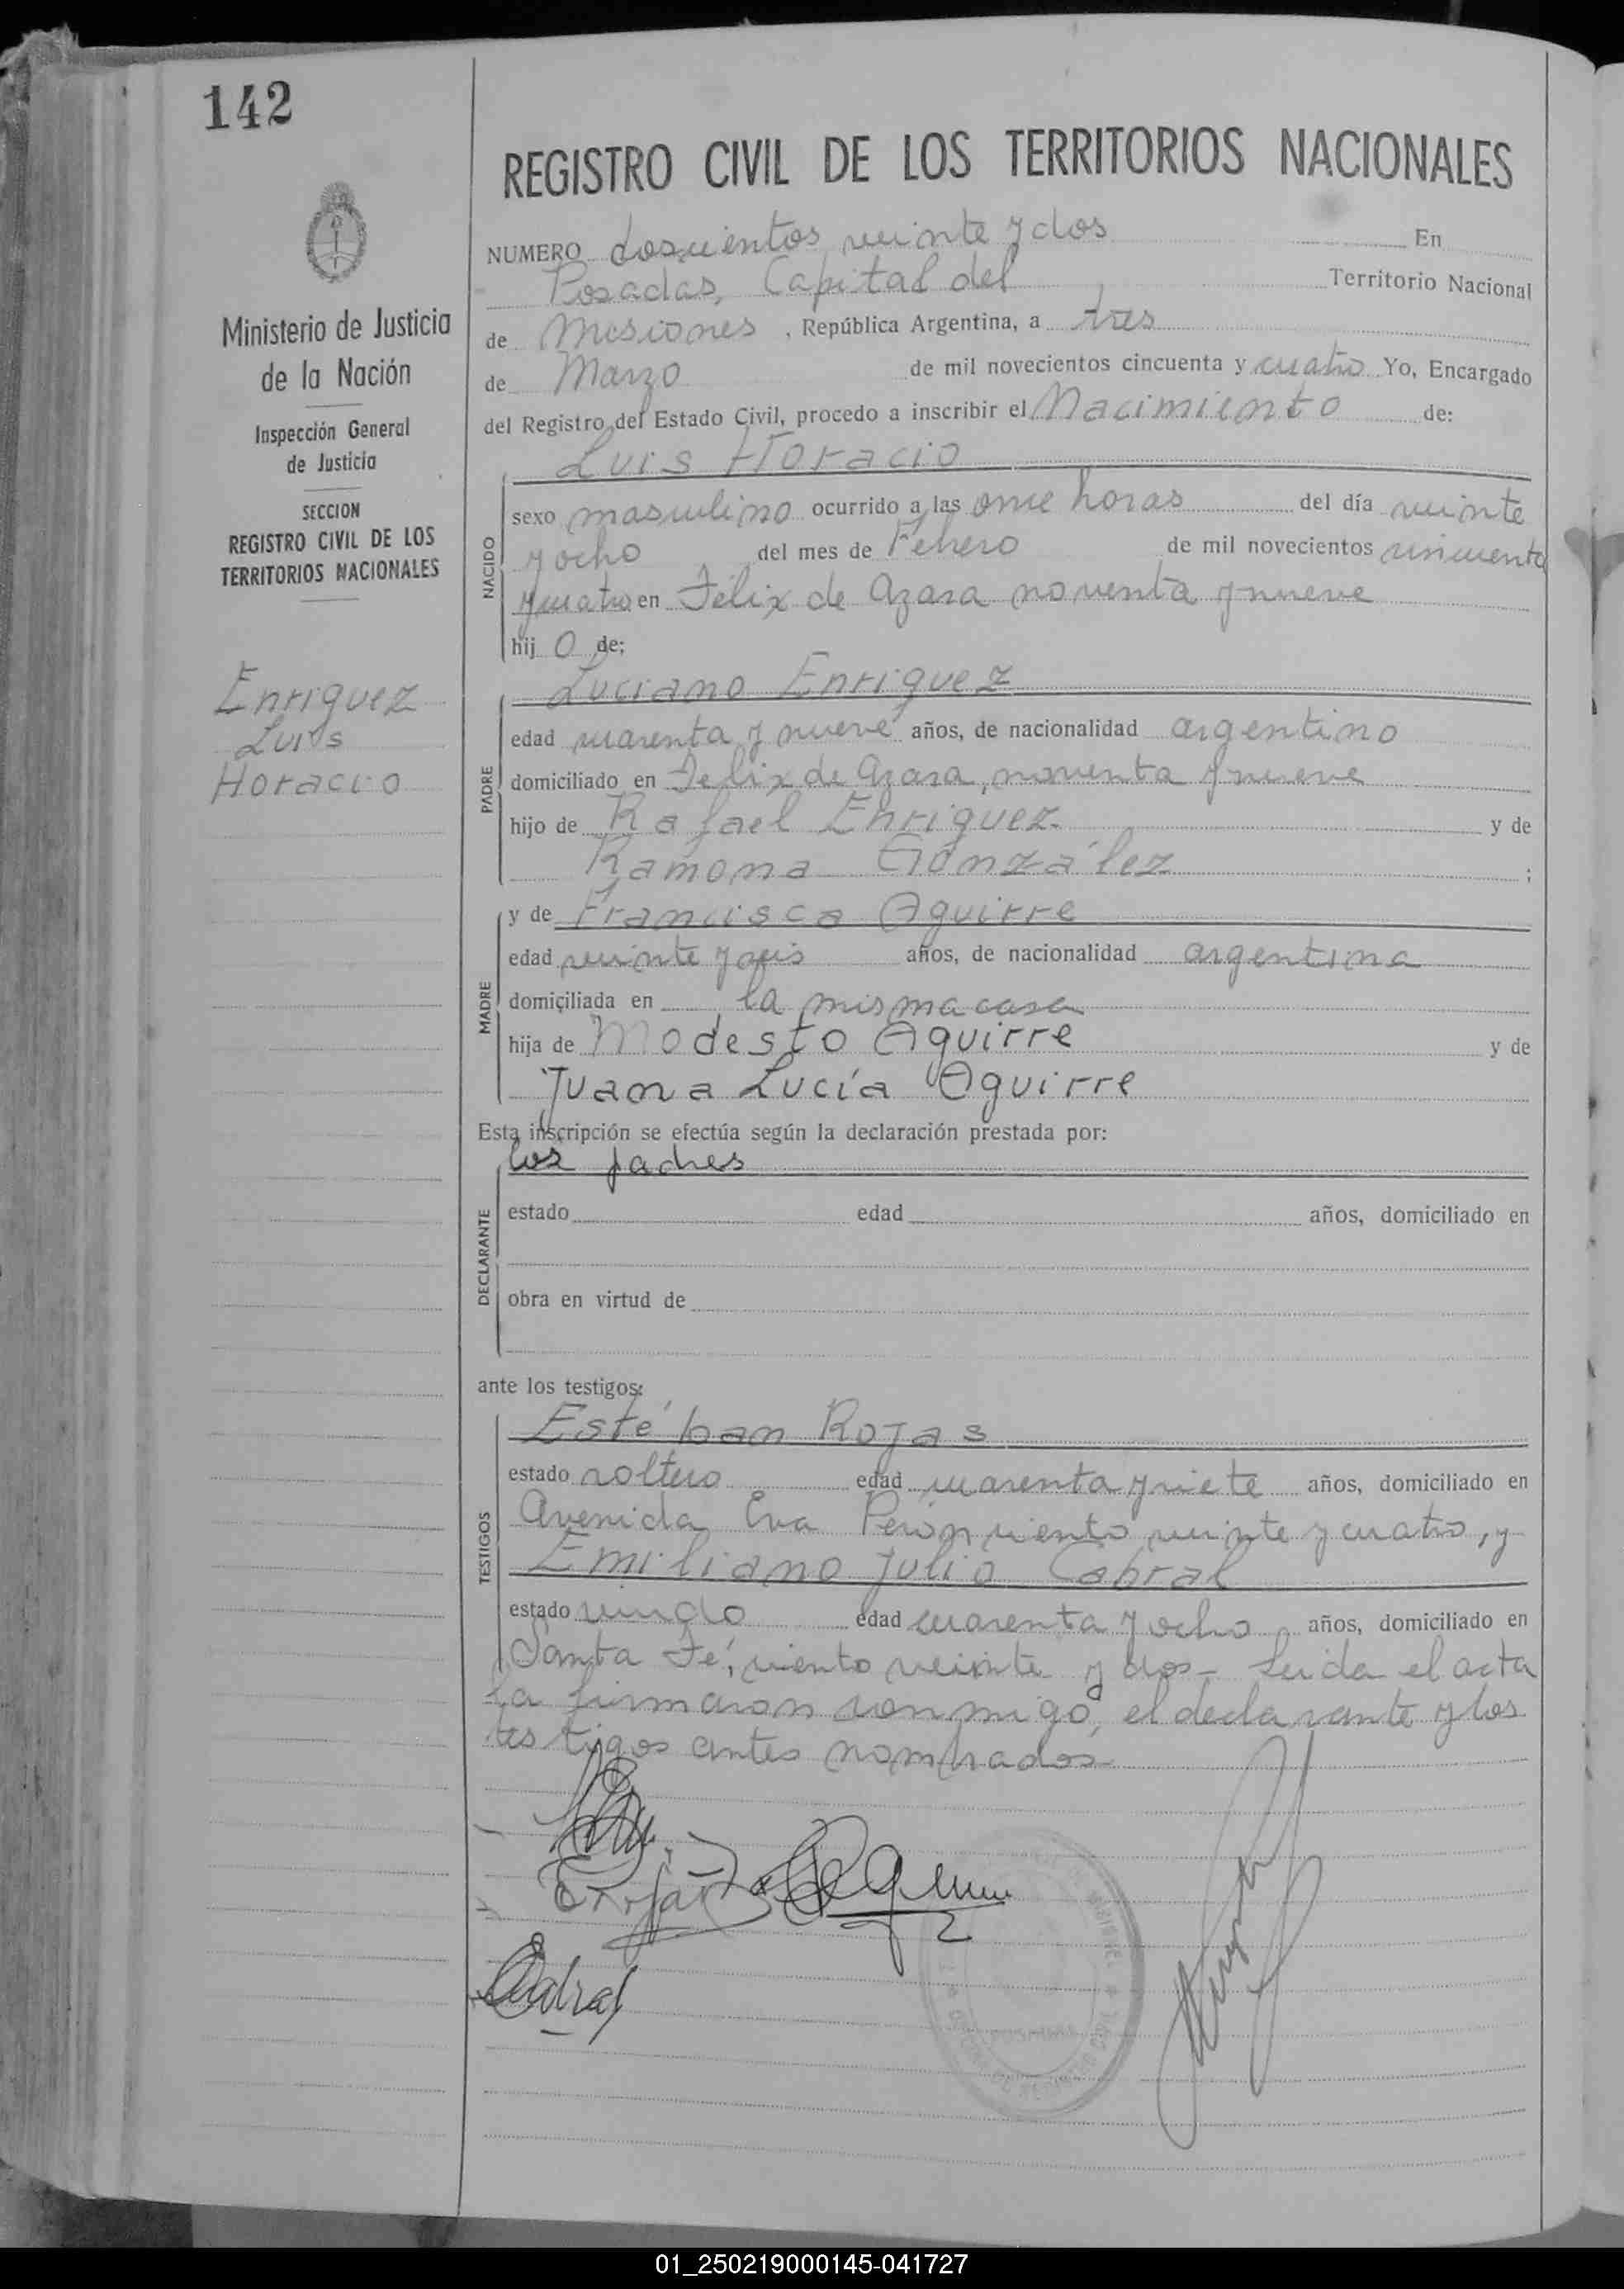 142
Ministerio de Justicia
de la Nación
Inspección General
de Justicia
SECCION
REGISTRO CIVIL DE LOS
TERRITORIOS NACIONALES
Enriquez
Luis
Horacio
REGISTRO CIVIL DE LOS TERRITORIOS NACIONALES
NUMERO doscientos veinte y dos En
Posadas, Capital del Territorio Nacional
de Misiones, República Argentina, a tres
de Marzo de mil novecientos cincuenta y cuatro Yo, Encargado
del Registro del Estado Civil, procedo a inscribir el Nacimiento de:
Luis Horacio
NACIDO
sexo masculino ocurrido a las once horas del día veinte
y ocho del mes de Febrero de mil novecientos cincuenta
y cuatro en Félix de Azara noventa y nueve
hijo de;
PADRE
Luciano Enriquez
edad cuarenta y nueve años, de nacionalidad argentino
domiciliado en Felix de Azara, noventa y nueve
hijo de Rafael Enriquez y de
Ramona González ;
MADRE
y de Francisca Aguirre
edad veinte y seis años, de nacionalidad argentina
domiciliada en la misma casa
hija de Modesto Aguirre y de
Juana Lucía Aguirre
Esta inscripción se efectúa según la declaración prestada por:
DECLARANTE
los padres
estado edad años, domiciliado en
obra en virtud de
ante los testigos:
TESTIGOS
Estéban Rojas
estado soltero edad cuarenta y siete años, domiciliado en
Avenida Eva Perón ciento veinte y cuatro, y
Emiliano Julio Cabral
estado viudo edad cuarenta y ocho años, domiciliado en
Santa Fé, ciento veinte y dos- Leida el acta
la firmaron conmigo, el declarante y los
testigos antes nombrados-
Cabral
01_250219000145-041727